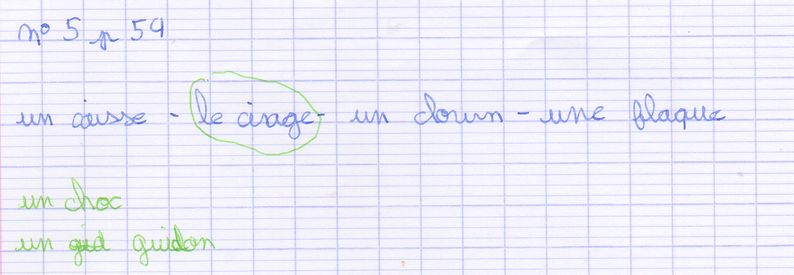 n° 5 p 59
un caisse - le cirage - un clown - une flaque
un choc
un guidon